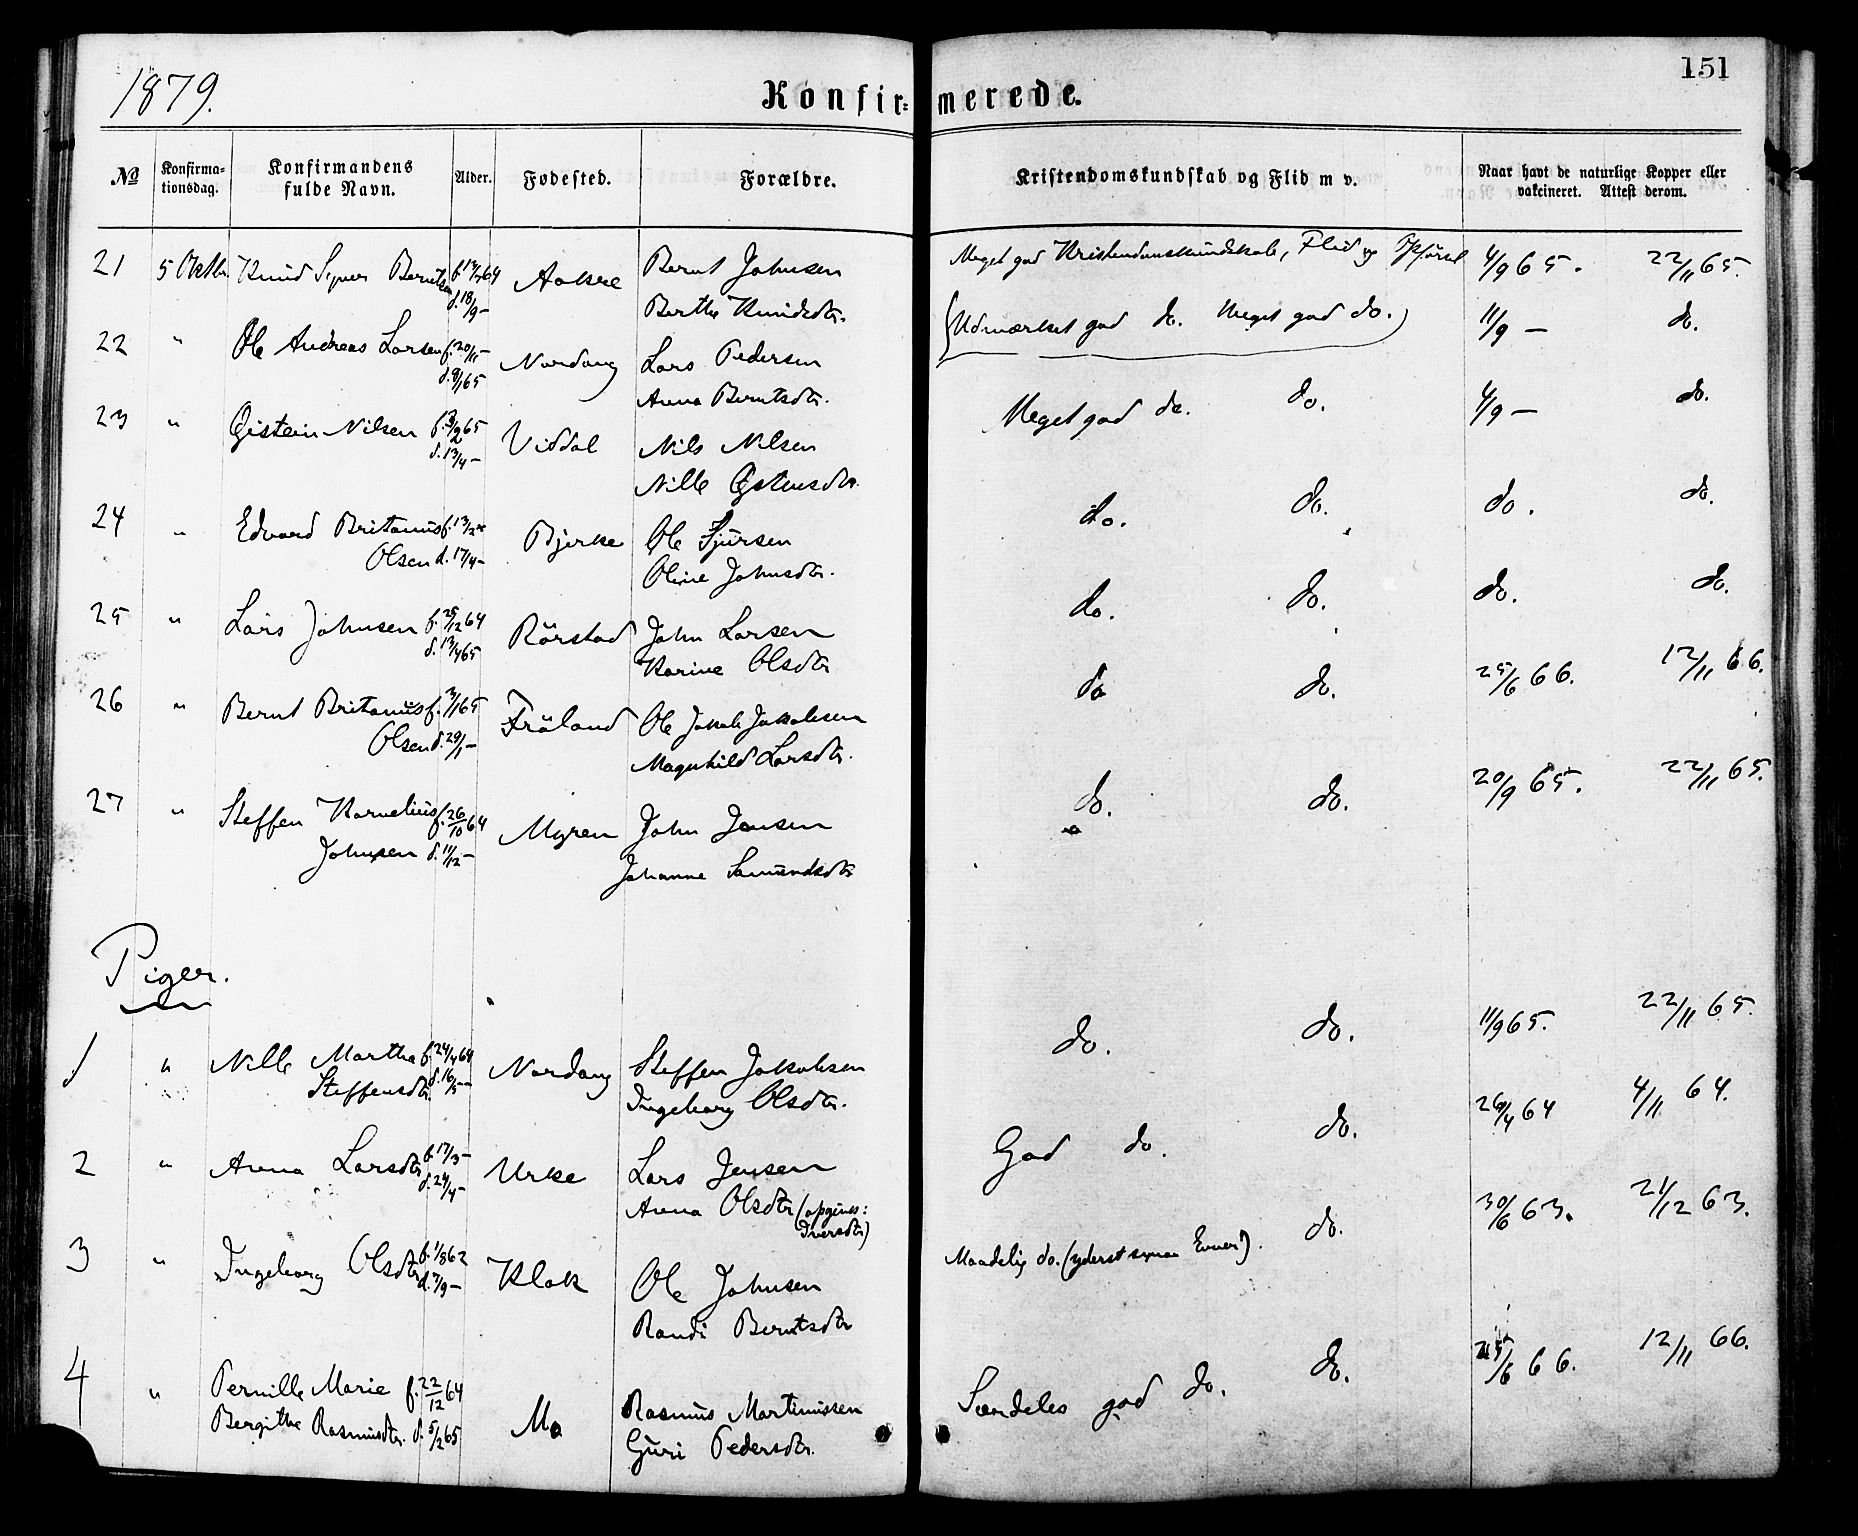 1879.
Konfir= merede.
151
No
Konfirma=
tionsdag.
Konfirmandens
fulde Navn.
Alder.
Fødested.
Forældre.
Kristendomskundskab og Flid m v.
Naar havt de naturlige Kopper eller
vakcineret. Attest derom.
21 5 Oktbr Knud Berntsen f. 64 Aakre Bernt Johnsen Meget god Kristendomskundskab, Flid og Opførsel 4/9 65. 22/11 65.
d. 18/9 - Berthe Knudsdtr.
22 " Ole Andreas Larsen f. 20/11 - Nordang Lars Pedersen (Udmærket god do. Meget god do.) 11/9 - do.
d. 9/1 65 Anna Berntsdtr.
23 " Øistein Nilsen f. 3/2 65 Viddal Nils Nilsen Meget god do. do. 4/9 - do.
d. 13/4 - Nille Østensdtr
24 " Edvard Britanus f. 13/2 Bjerke Ole Sjursen do. do. do. do.
Olsen d. 17/4 - Oline Johnsdtr.
25 " Lars Johnsen f. 25/12 64 Rørstad John Larsen do. do. do. do.
d. 13/4 65 Karine Olsdtr
26 " Bernt Britanus f. 3/1 65 Frøland Ole Jakob Jakobsen do do. 25/6 66. 12/11 66.
Olsen d. 29/1 - Magnhild Larsdtr.
27 " Steffen Kornelius f. 26/10 64 Myren John Jensen do. do. 20/9 65. 22/11 65.
Johnsen d. 11/12 - Johanne Samundsdtr
Piger.
1 " Nille Martha f. 24/4 64 Nordang Steffen Jakobsen do. do. 11/9 65. 22/11 65.
Steffensdtr. d. 16/5 - Ingeborg Olsdtr.
2 " Anna Larsdtr f. 17/3 - Urke Lars Jensen God do. do. 26/4 64 4/11 64.
d. 24/4 - Anna Olsdtr (opgives:
Iversdtr)
3 " Ingeborg Olsdtr f. 1/8 62 Klok Ole Johnsen Maadelig do. (yderst svage Evner). do. 30/6 63. 21/12 63.
d. 7/9 - Randi Berntsdtr
4 " Pernille Marie f. 22/12 64 Mo Rasmus Martinussen Særdeles god do. do. 25/6 66. 12/11 66.
Bergithe Rasmusdtr. d. 5/2 65 Guri Pedersdtr.